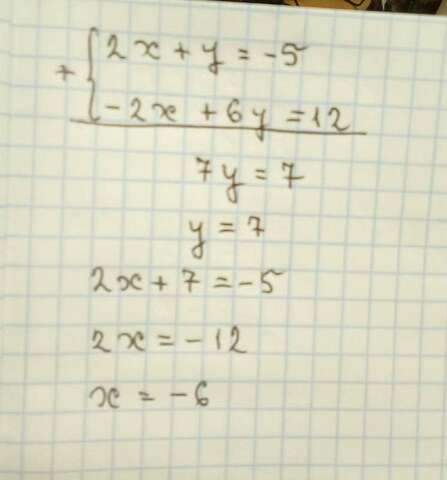 + { 2x + y = -5
-2x + 6y = 12
7y = 7
y = 7
2x + 7 = -5
2x = -12
x = -6